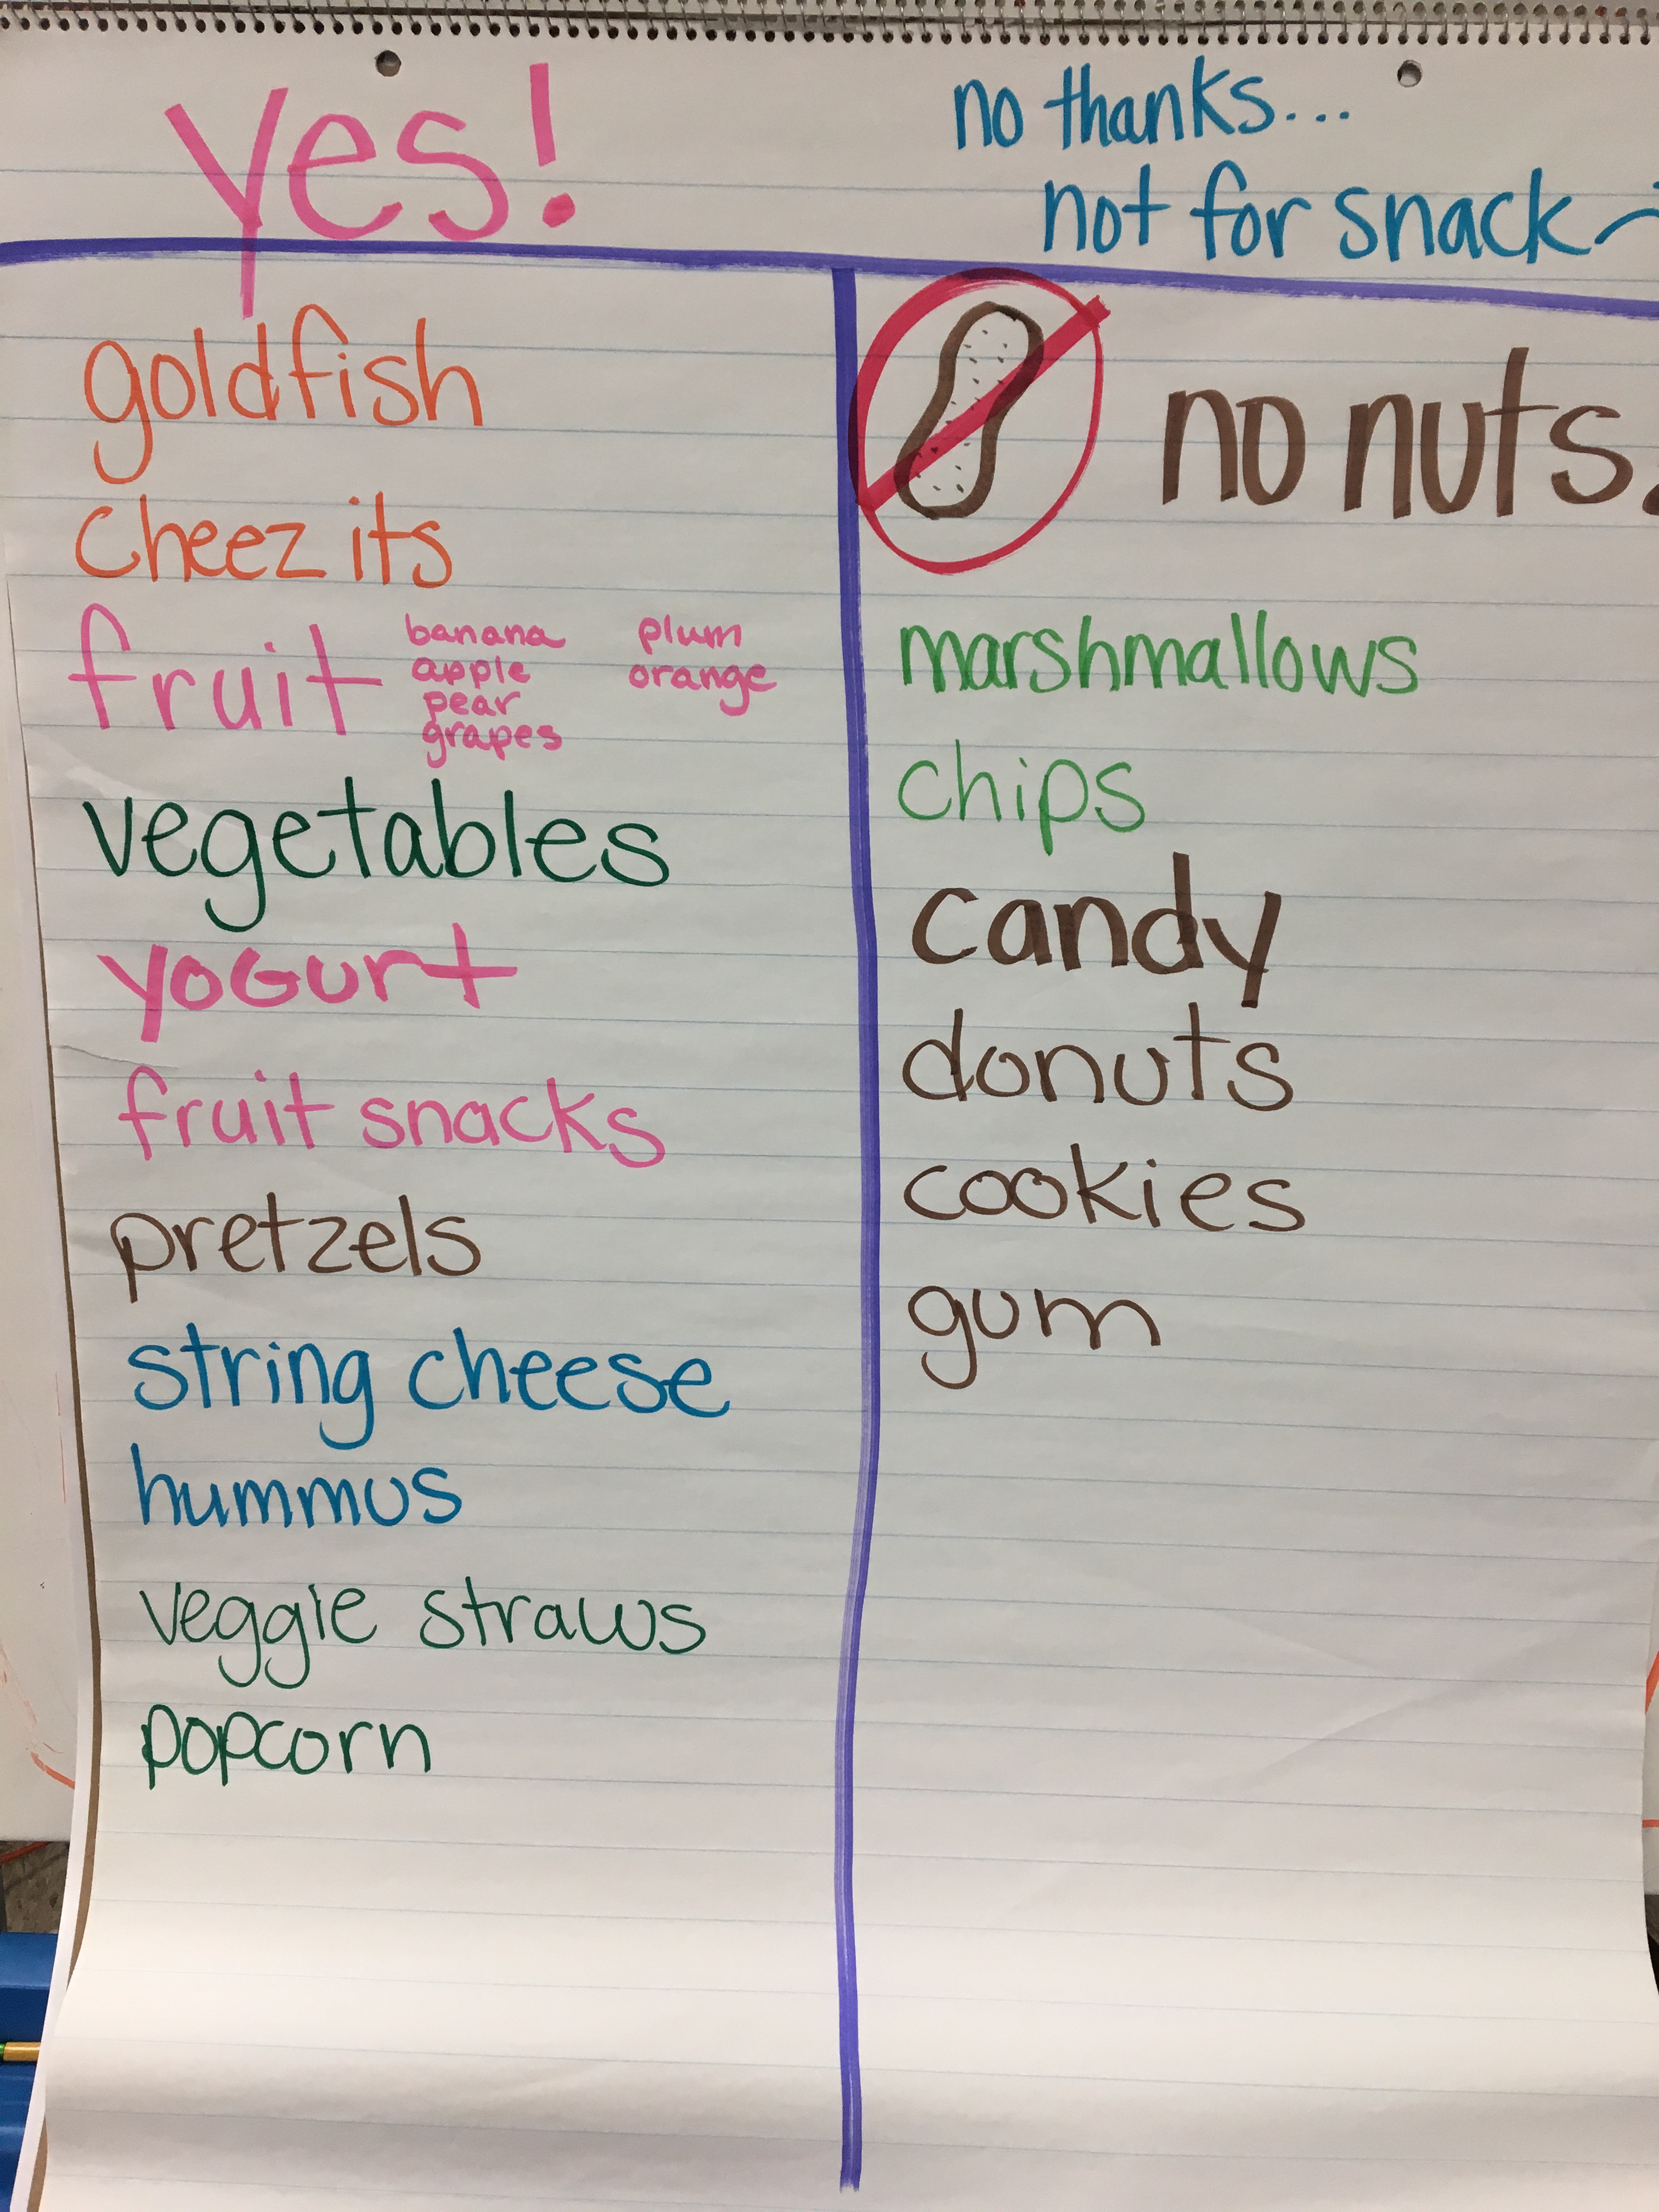 yes!
no thanks...
not for snack
goldfish
cheez its
fruit
banana
apple
pear
grapes
plum
orange
vegetables
yoGurt
fruit snacks
pretzels
string cheese
hummus
veggie straws
popcorn
no nuts.
marshmallows
chips
candy
donuts
cookies
gum